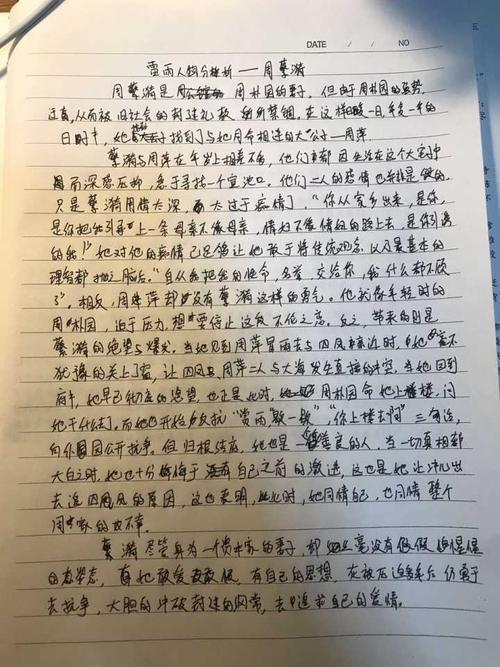 DATE / / NO
雷雨人物分析——周蘩漪
周蘩漪是周朴园的妻子，但由于周朴园的
从而被旧社会的封建礼教的所禁锢。在这样日复一日年复一年的
日时中，她找到了与她同命相连的大公子——周萍
蘩漪与周萍在年岁上相差不多，他们都因生活在这个大家中
而深感压抑，急于寻找一个宣泄口。他们二人的感情也并非是假的，
只是蘩漪用情太深，太过于痴情了，“你从家乡出来，是你，
是你把我引到一条母亲不像母亲，情妇不像情妇的路上去，是你引诱
的我！”她对他的痴情已足够让她敢于将传统观念，以及最基本的
理智都抛之脑后。“自从我把我的性命，名誉，交给你，我什么都不顾
了”。相反，周萍却没有蘩漪这样的勇气。他就像年轻时的
周朴园，迫于压力，想要停止这段不伦之恋。反之，带来的则是
蘩漪的绝望与爆发。当她见到周萍冒雨去与四凤亲近时，她毫不
犹豫的关上了窗，让四凤、周萍二人与大海发生直接的冲突。当她回到
府中，她早已彻底的绝望，也正是此时，周朴园命她上楼，问
她干什么去了。而她也开始反抗“赏雨”“歇一歇”，“你上楼去啊”三句话，
向朴园公开抗争。但归根结底，她也是一善良的人，当一切真相都
大白之时，她也十分悔恨于自己之前的激进，这也是她让冲儿出
去追四凤的原因，这也表明，此时，她同情自己，也同情整个
周家的不幸。
蘩漪尽管身为一个资本家的妻子，却丝毫没有假惺惺
的姿态，她敢爱敢恨，有自己的思想，在被压迫多年后仍勇于
去抗争，大胆的冲破封建的纲常，去追求自己的爱情。